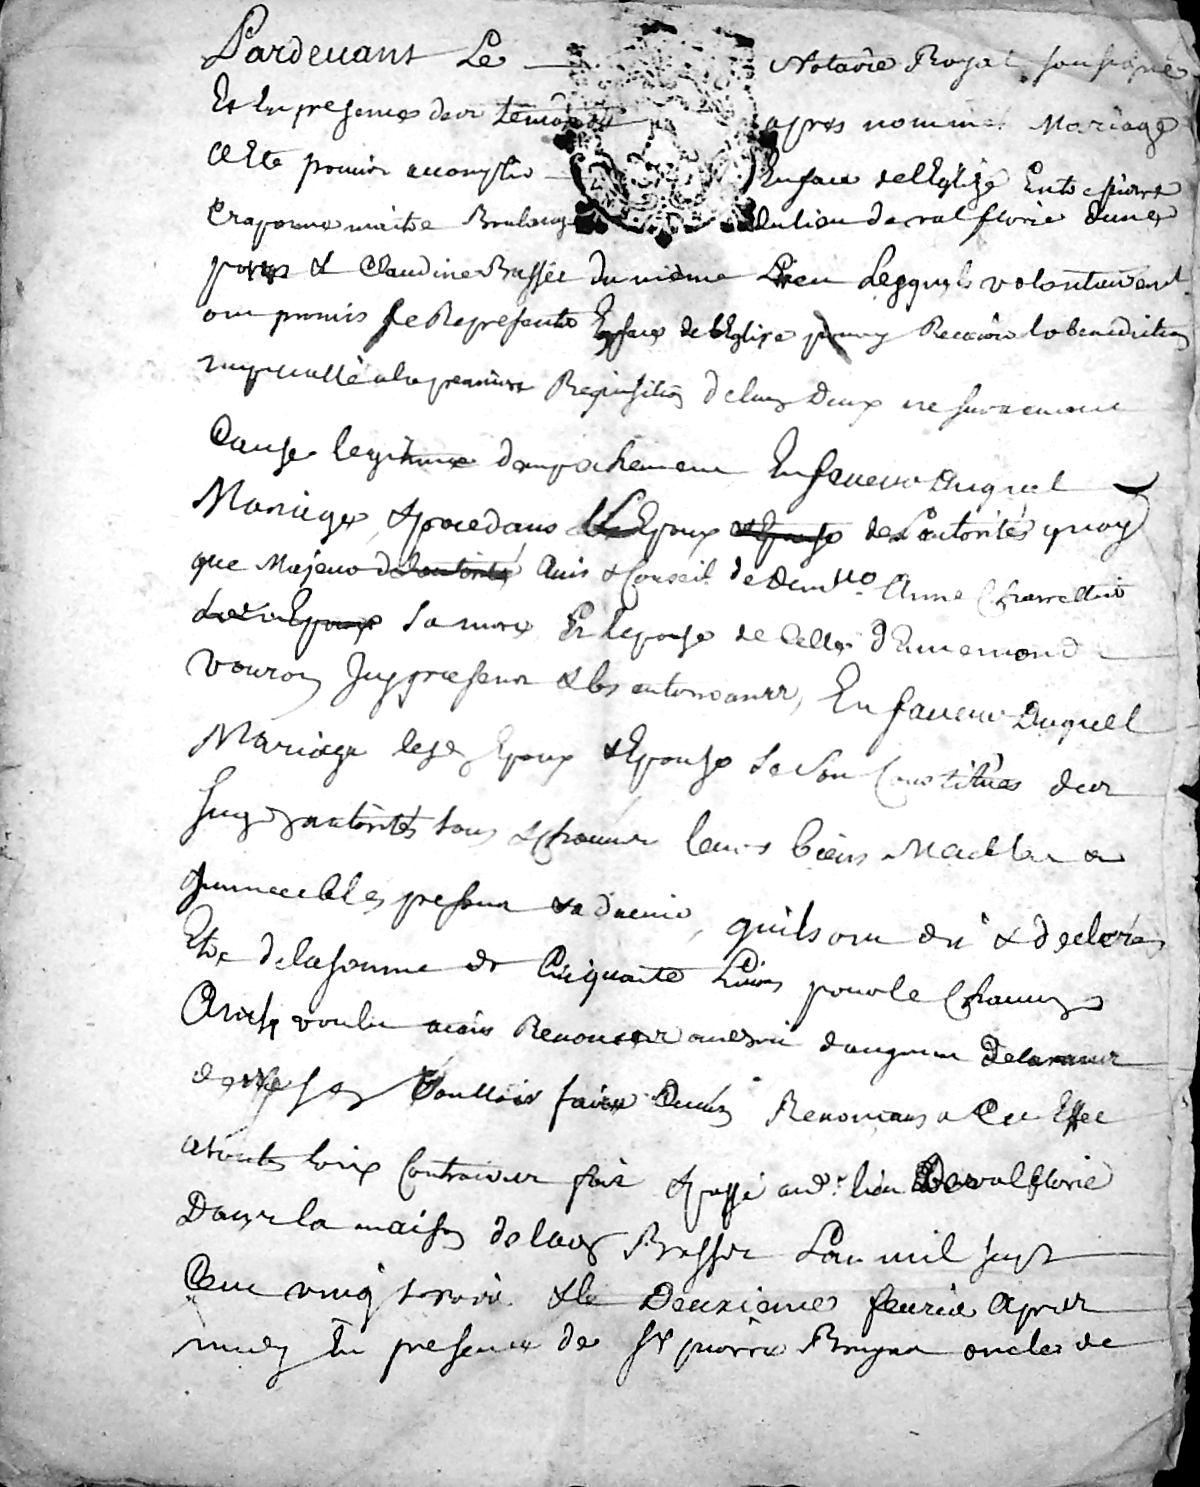 Pardevant Le Notaire Royal soussigné
Et En presence des temoins apres nommes Mariage
a Ete promis accomplir En face de l'Eglize Entre pierre
Craponne maitre Boulanger du lieu de valflorie dune
part & Claudine Bassée du mesme Lieu Lesquels volontairement
ont promis se Representer En face de l'Eglise pour y Recevoir la benediction
nuptialle a la premiere Requisition de lun deux ne survenant
Cause legitime dempechement En faveur duquel
Mariage, & procedans L'Epoux de L'autorité quoy
que Majeur avis & Conseil de demlle Anne Charrettier
sa mere Et lepouse de Celle d'Ennemond
vouron Icy present & les autorisants, En faveur Duquel
Mariage lesd Epoux & Epouse se son Constitués des
susd autorités tous & chacuns leurs biens Meubles et
Immeubles presens & advenir, quils ont dit & declarés
Etre de la somme de Cinquante Livres pour le Chacun
voulu Renoncer
Voulloir faire Renoncans a Cet Effet
a toutes loix Contraires fait & passé aud. lieu De valflorie
Dans la maison de lad Bassée L'an mil sept
Cent vingt trois & le Deuxieme fevrier apres
midy En presence de sr pierre oncle de